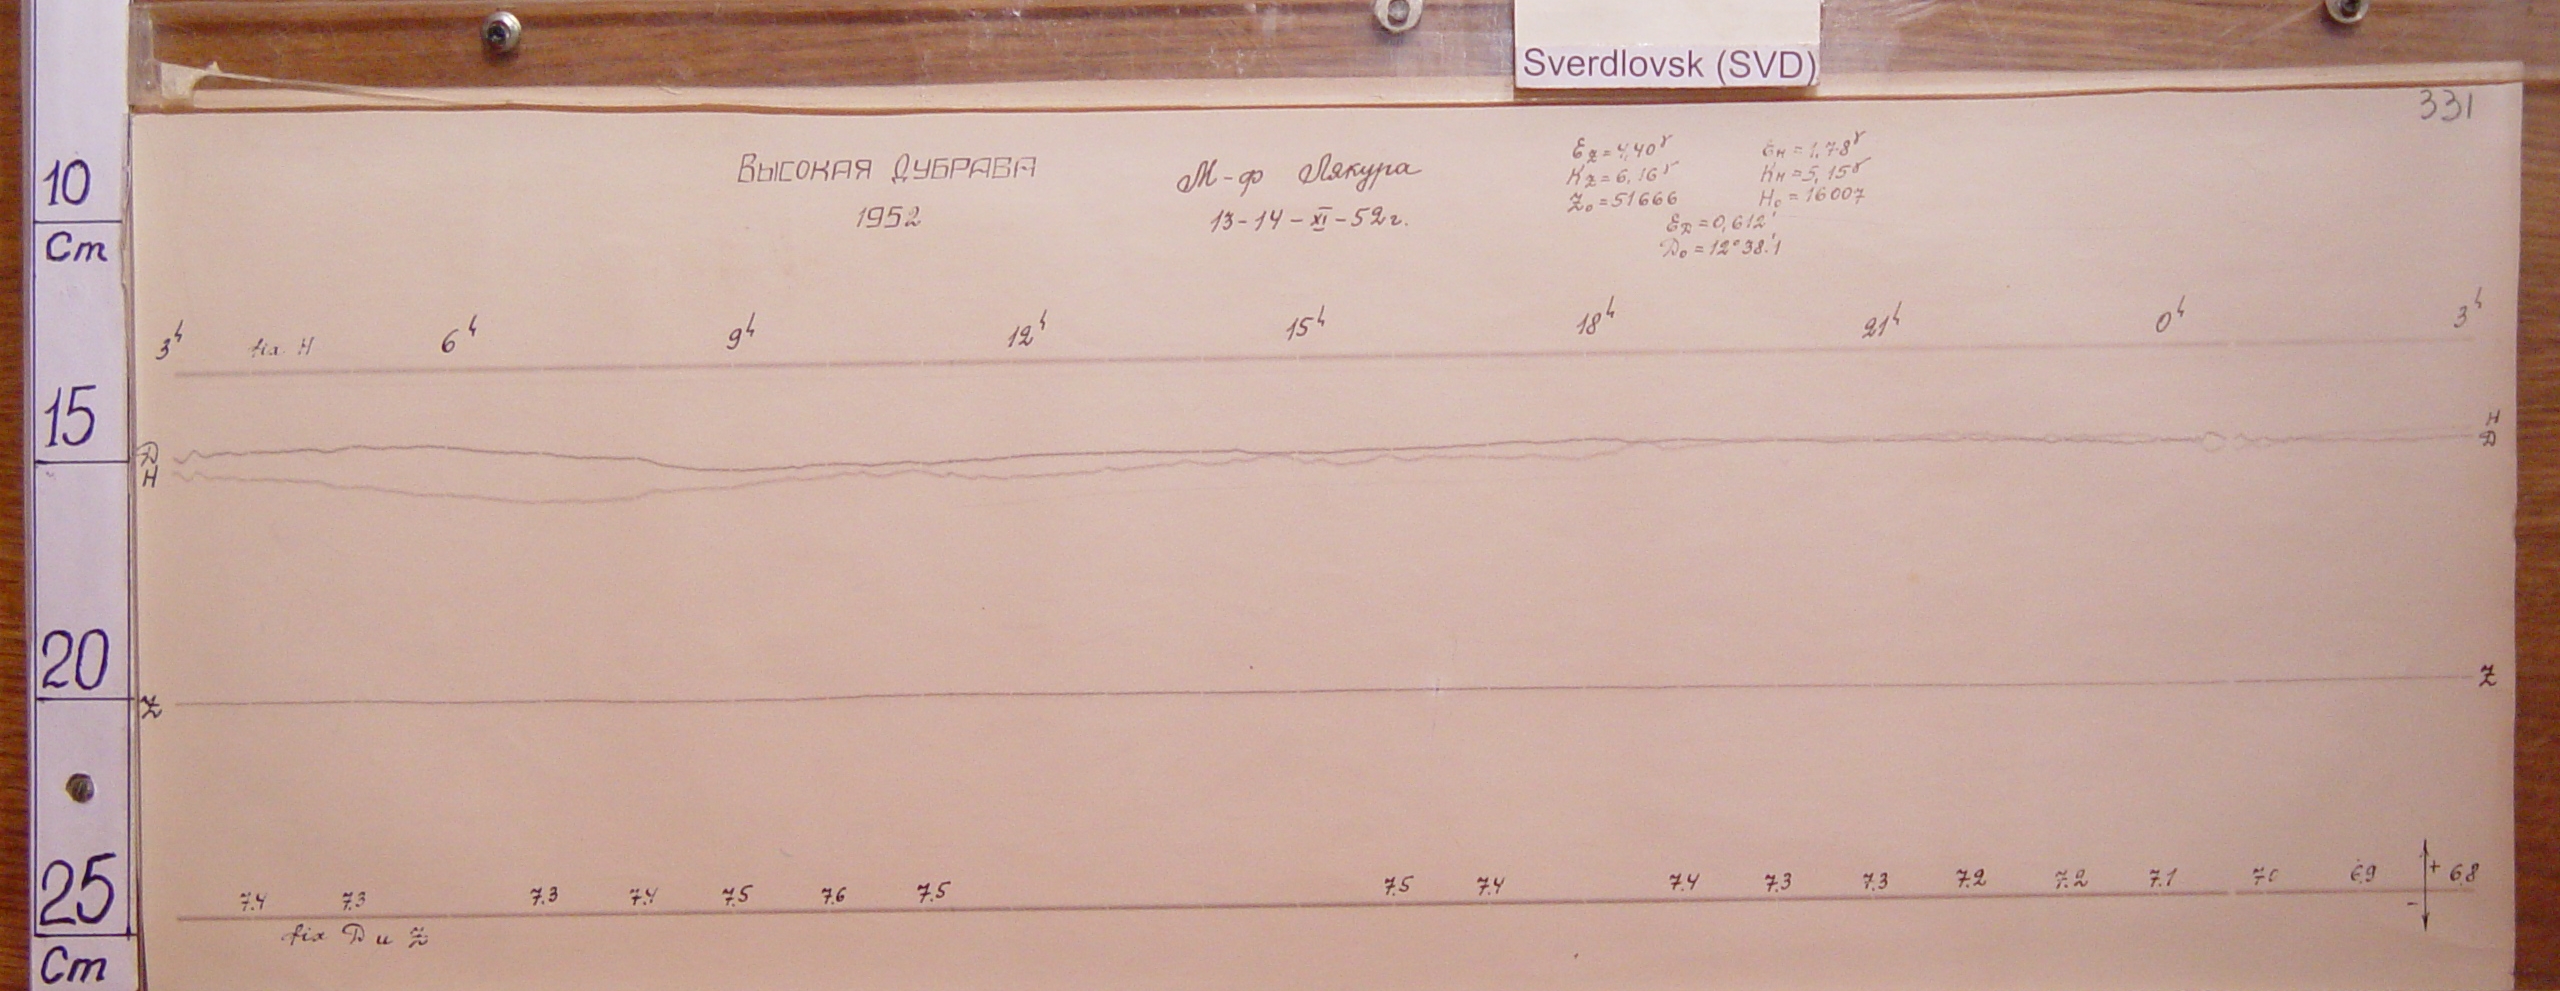 Sverdlovsk (SVD)
331
10
Cm
15
20
25
Cm
Высокая Дубрава
1952
М-ф Лякура
13-14-XI-52г.
Ez=4,40γ
Kz=6,16γ
Z₀=51666
Eн=1,78γ
Kн=5,15γ
H₀=16007
Eд=0,612'
D₀=12°38.'1
3h fix H 6h 9h 12h 15h 18h 21h 0h 3h
D
H
H
D
Z
Z
7.4 7.3 7.3 7.4 7.5 7.6 7.5 7.5 7.4 7.4 7.3 7.3 7.2 7.2 7.1 7.0 6.9 + 6.8
-
fix D и Z